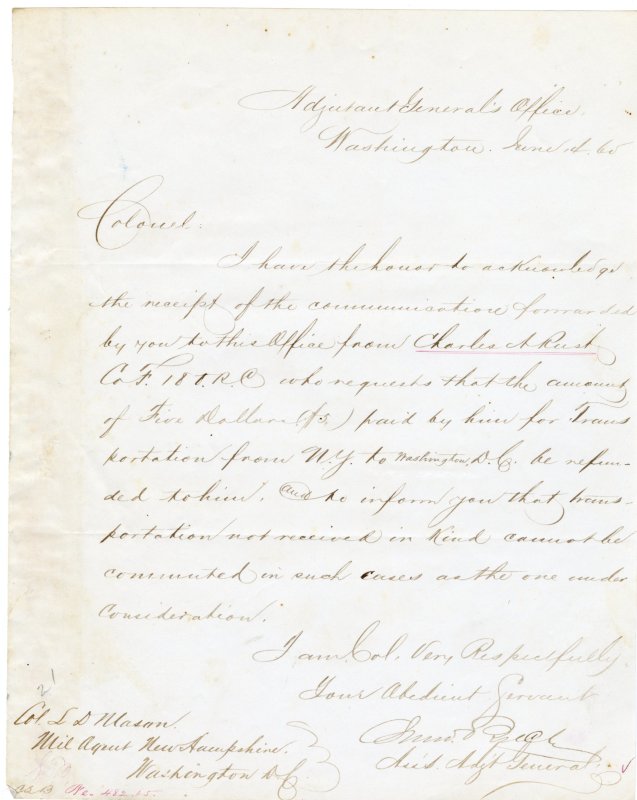 Adjutant General's Office,
Washington. June 14. 65
Colonel.
I have the honor to acknowledge
the receipt of the communication forwarded
by you to this Office from Charles A Rust
Co F. 18 V.R.C who requests that the amount
of Five Dollars ($5,) paid by him for Trans
portation from N.Y. to Washington, D.C. be refun-
ded to him. and to inform you that trans-
portation not received in Kind cannot be
commuted in such cases as the one under
consideration.
I am Col. Very Respectfully
Your Obedient Servant
Asis. Adjt General.
21
Col L D Mason.
Mil Agent New Hampshire.
Washington D.C.